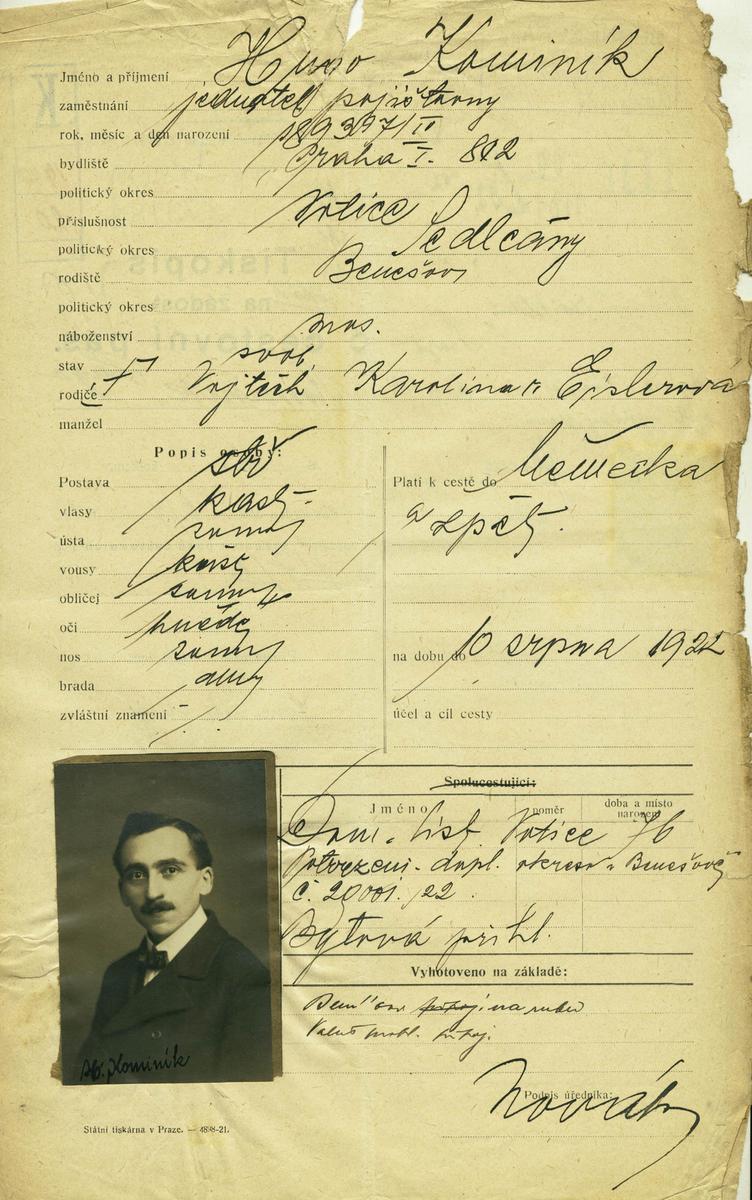 Jméno a příjmení Hugo Kominík
zaměstnání jednatel pojišťovny
rok, měsíc a den narození
bydliště Praha I. 812
politický okres
příslušnost Votice
politický okres Sedlčany
rodiště Benešov
politický okres
náboženství mos.
stav svob.
rodiče † Vojtěch Karolina r. Eislerová
manžel
Popis osoby:
Postava
vlasy kašt.
ústa
vousy kašt.
obličej
oči hnědé
nos
brada
zvláštní znamení -
Platí k cestě do Německa
a zpět.
na dobu do 10 srpna 1922
účel a cíl cesty
Spolucestující:
Jméno poměr doba a místo
narození
Dom. list Votice 76
Potvrzení dopl. okresu v Benešově
č. 20001/22
Bytová přihl.
Vyhotoveno na základě:
Podpis úředníka:
Novák
H. Kominík
Státní tiskárna v Praze. — 4898-21.